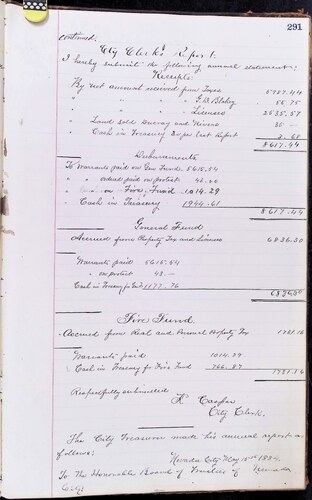 291
Continued:
City Clerk's Report.
I hereby submit the following annual statement:
Receipts:
By net amount received from Taxes 5987.44
" " " " G.W. 56.75
" " " " Licenses 2535.57
" Land Sold and 30
" Cash in Treasury as per last Report 8.60
8617.44
Disbursements
To Warrants paid on Gen Fund. 5615.54
" " paid on protest 43.00
" " on Fire Fund 1014.29
" Cash in Treasury 1944.61
8617.44
General Fund
Accrued from Property Tax and Licenses 6836.30
Warrants paid 5615.54
" on protest 43.—
Cash in Treasury for Gen Fund 1177.76
6836.30
Fire Fund
Accrued from Real and Personal Property Tax 1781.16
Warrants paid 1014.29
Cash in Treasury for Fire Fund 766.87
1781.16
Respectfully submitted
City Clerk.
The City Treasurer made his annual report as
follows:
Nevada City May 15th 1884.
To The Honorable Board of Trustees of Nevada
City